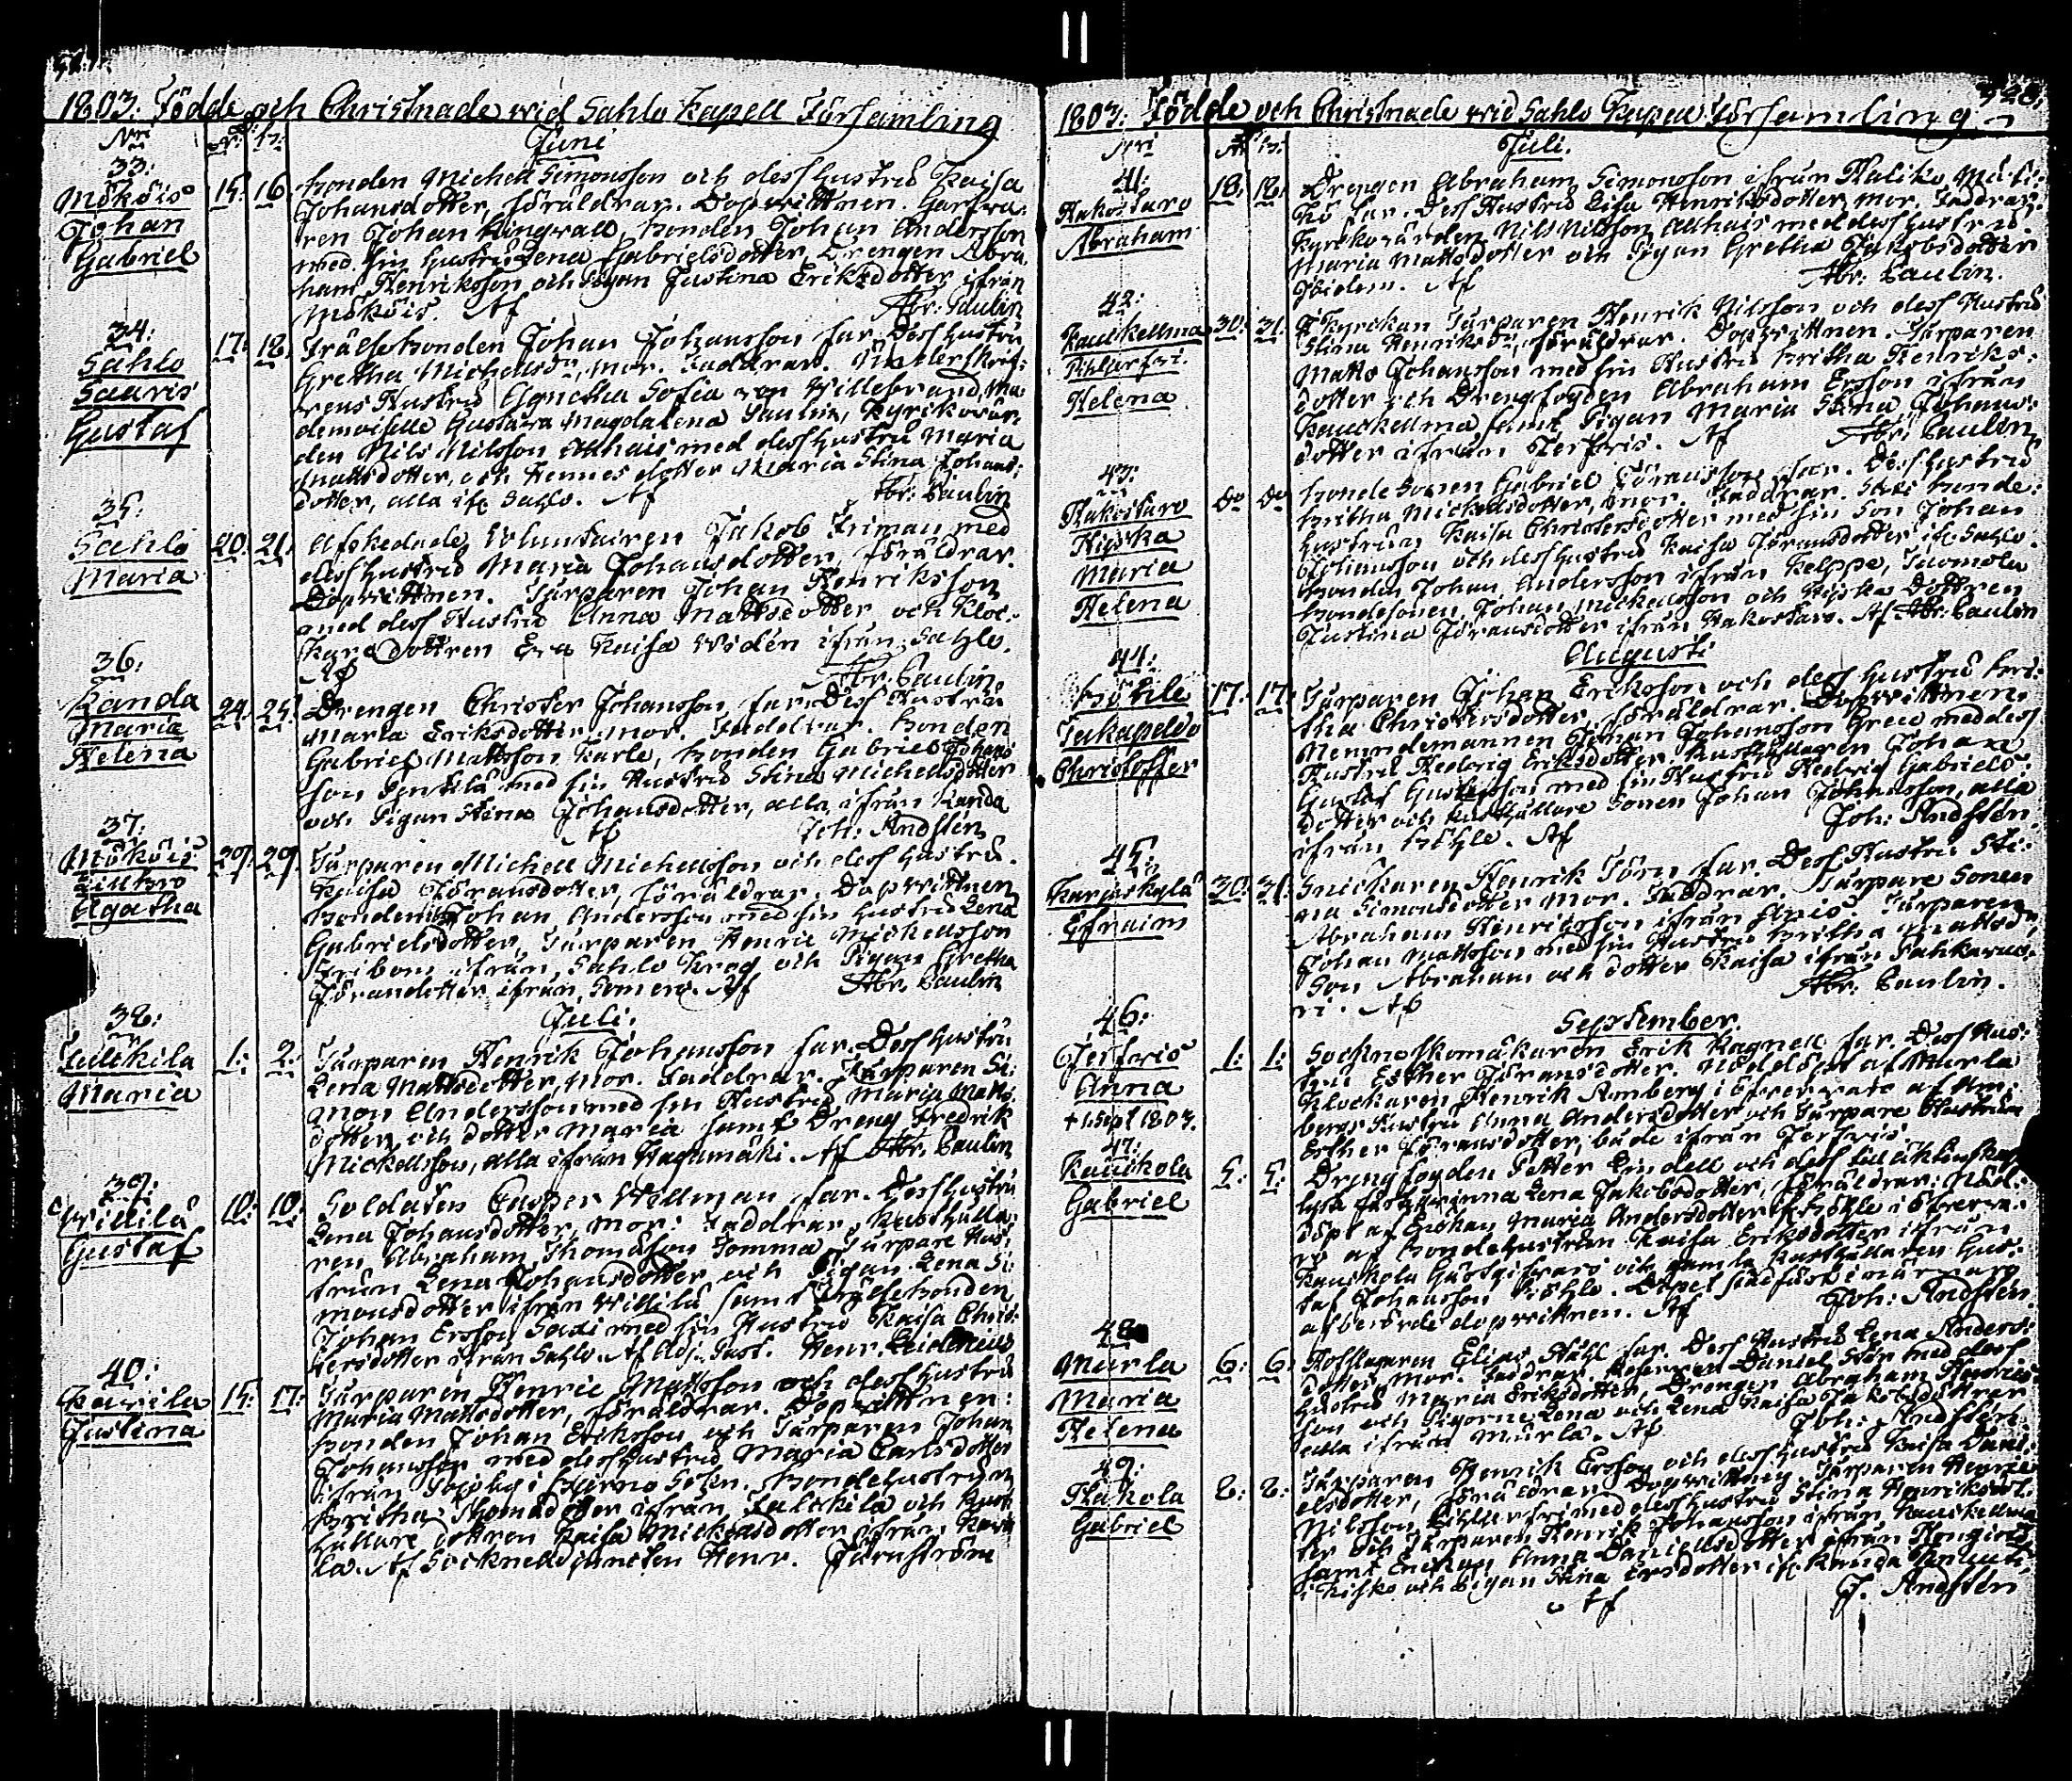 1803. Födde och Christnade wid Sahlo Kapell Församling
Nri
Juni
33:
Mököis
Johan
Gabriel
15: 16.
Bonden Michell Simonsson och dess hustru Kaisa
Johansdotter, föräldrar. Dopwittnen. Garfwa-
ren Johan Ringwall, bonden Johan Andersson
med sin hustru Lena Gabrielsdotter, Drengen Abra-
ham Henriksson och Pigan Justina Eriksdotter ifrån
Mököis. Af Abr: Paulin
34:
Sahlo
Saaris
Gustaf
17: 18.
Frälsebonden Johan Johansson far. Dess hustru
Gretha Michellsdr, mor. Faddrar. Underskrif-
rens Hustru Agnetha Sofia von Willebrand, Ma-
demoiselle Gustava Magdalena Paulin, Kyrkovär-
den Nils Nilsson Alhais med dess hustru Maria
Mattsdotter, och Hennes dotter Maria Stina Johans-
dotter, alla ifr. Sahlo. Af Abr: Paulin
35:
Sahlo
Maria
20: 21.
Afskedade Voluntairen Jakob Friman med
dess hustru Maria Johansdotter, föräldrar.
Dopwittnen. Torparen Johan Henriksson
med dess Hustru Anna Mattsdotter och Kloc-
kare dottren Eva Kaisa Widen ifrån Sahlo.
Af Abr: Paulin
36:
Kanda
Maria
Helena
24: 25:
Drengen Christer Johansson, far. Dess Hustru
Maria Eriksdotter, mor. Faddrar. Bonden
Gabriel Mattsson Karle, bonden Gabriel Johans-
son Penkilä med sin Hustru Stina Michellsdotter
och Pigan Stina Johansdotter, alla ifrån Kanda
Af Joh: Andstén
37:
Mököis
Agatha
29. 29.
Torparen Michell Michellsson och dess hustru
Kaisa Jöransdotter, föräldrar. Dopwittnen
bonden Johan Andersson med sin hustru Lena
Gabrielsdotter, Torparen Henric Mickelsson
ifrån Sahlo Krog och Pigan Gretha
Jöransdotter ifrån Somero. Af Abr. Paulin
Juli.
38:
Tulckila
Maria
1: 2:
Torparen Henrik Johansson far. Dess hustru
Lena Mattsdotter, Mor. Faddrar. Torparen Si-
mon Andersson med sin Hustru Maria Matts-
dotter, och dotter Maria samt Dreng Fredrik
Mickellsson, alla ifrån Hagamäki. Af Abr. Paulin
39:
Willilä
Gustaf
10: 10:
Soldaten Casper Wellman far. Dess hustru
Lena Johansdotter, mor: Faddrar. Rusthålla-
ren Abraham Thomasson Tomma, Torpare Hus-
trun Lena Johansdotter och Pigan Lena Si-
monsdotter ifrån Willilä samt Frälsebonden
Johan Ersson Saxi med sin Hustru Kaisa Chris-
tersdotter ifrån Sahlo. Af Adj. Past. Henr. Heidenius
40:
Karila
Justina
15: 17:
Torparen Henric Mattsson och dess hustru
Maria Mattsdotter, föräldrar. Dopwittnen:
bonden Johan Eriksson och Torparen Johan
Johansson med dess hustru Maria Carlsdotter
ifrån i Bjerno Sokn. Bondehustrun
Britha Thomadotter ifrån Tulckila och Rust-
hållare dottren Kaisa Mickelsdotter ifrån Kari-
la. Af Sockne Adjuncten Henr. Järnström
528.
1803. Födde och Christnade wid Sahlo Kapell Församling
Nri
Juli.
41:
Hakostaro
Abraham
18: 18.
Drengen Abraham Simonsson ifrån Haliko,
far. Dess Hustru Lisa Henriksdotter, mor. Faddrar.
Kyrkovärden Nils Nilsson Alhais med dess hustru
Maria Mattsdotter och Pigan Gretha Jakobsdotter
Ibidem. Af Abr: Paulin.
42:
Kauckellma
Helena
30: 31.
I Kyrkan Torparen Henrik Nilsson och dess Hustru
Stina Henriksdr, föräldrar. Dopwittnen. Torparen
Matts Johansson med sin Hustru Britha Henriks-
dotter och Drengfogden Abraham Ersson ifrån
Kauckellma samt Pigan Maria Stina Johans-
dotter ifrån Terfvis. Af Abr: Paulin
43:
Hakostaro
Hyska
Maria
Helena
Do Do
Bonde Sonen Gabriel Jöransson far. Dess hustru
Britha Mickelsdotter, mor. Faddrar. Bonde-
hustrun Kaisa Christersdotter med sin Son Johan
och dess hustru Kaisa Jöransdotter ifr. Sahlo.
Bonden Johan Andersson ifrån Kelppe, Tavmola
bondesonen Johan Mickellsson och Hyska Dottren
Justina Jöransdotter ifrån Hakostaro. Af Abr: Paulin
Augusti
44:
Pöhle
Christoffer
17: 17:
Torparen Johan Eriksson och dess hustru Bri-
tha Christersdotter, föräldrar. Dopwittnen.
Nemndemannen Johan Johansson med dess
Hustru Hedvig Eriksdotter, Rusthållaren Johan
Gustaf Gustafsson med sin Hustru Hedvig Gabriels-
dotter och Rusthållare Sonen Johan Johansson, alla
ifrån Pöhle. Af Joh: Andstén.
45:
Karjaskylä
Efraim
30: 31:
Snickaren Henrik Törn far. Dess Hustru Sti-
na Simonsdotter Mor. Faddrar. Torpare Sonen
Abraham Henriksson ifrån Torparen
Johan Mattsson med sin Hustru Britha Mattsdr,
Son Abraham och dotter Kaisa ifrån Pahkavuo-
ri. Af Abr: Paulin.
September
46:
Terfvis
Anna
+ 1. Sept 1803.
1: 1:
Sockneskomakaren Erik Ragnell far. Dess Hus-
tru Esther Jöransdotter. Nöddöpt af Murla
Klockaren Henrik Romberg i öfvervaro af Rom-
bergs Hustru Anna Andersdotter och Torpare Hustrun
Esther Jöransdotter, både ifrån Terfvis
47:
Kauckola
Gabriel
5: 5:
Drengfogden Petter Lindell och dess till äktenskap
Lena Jakobsdotter, föräldrar: Nöd-
döpt af Enckan Maria Andersdotter ifr Pöhle i öfverva-
ro af bondehustrun Kaisa Eriksdotter ifrån
Kauckola Gästgifvars och gamla Rusthållaren Gus-
taf Johansson Pöhle. Dopet stadfäst i närvaro
af berörde dopwittnen. Af Joh: Andstén.
48
Murla
Maria
Helena
6: 6:
Hofslagaren Elias Ståhl far. Dess Hustru Lena Anders-
dotter, mor. Faddrar. Daniel Stör med dess
hustru Maria Eriksdotter, Drengen Abraham Henrics-
son och Pigorne Lena och Lena Kaisa Jakobsdöttrar
alla ifrån Murla. Af Joh: Andstén
49:
Hakola
Gabriel
8: 8:
Torparen Henrik Ersson och dess hustru Kaisa Dani-
elsdotter, föräldrar. Dopwittnen. Torparen Henric
Nilsson med dess hustru Stina Henriksdot-
ter och Torparen Henrik Johansson ifrån Kauckellma
samt Enckan Anna Daniellsdotter ifrån
i Kisko och Pigan Stina Ersdotter ifr. Kanda
Af J. Andstén